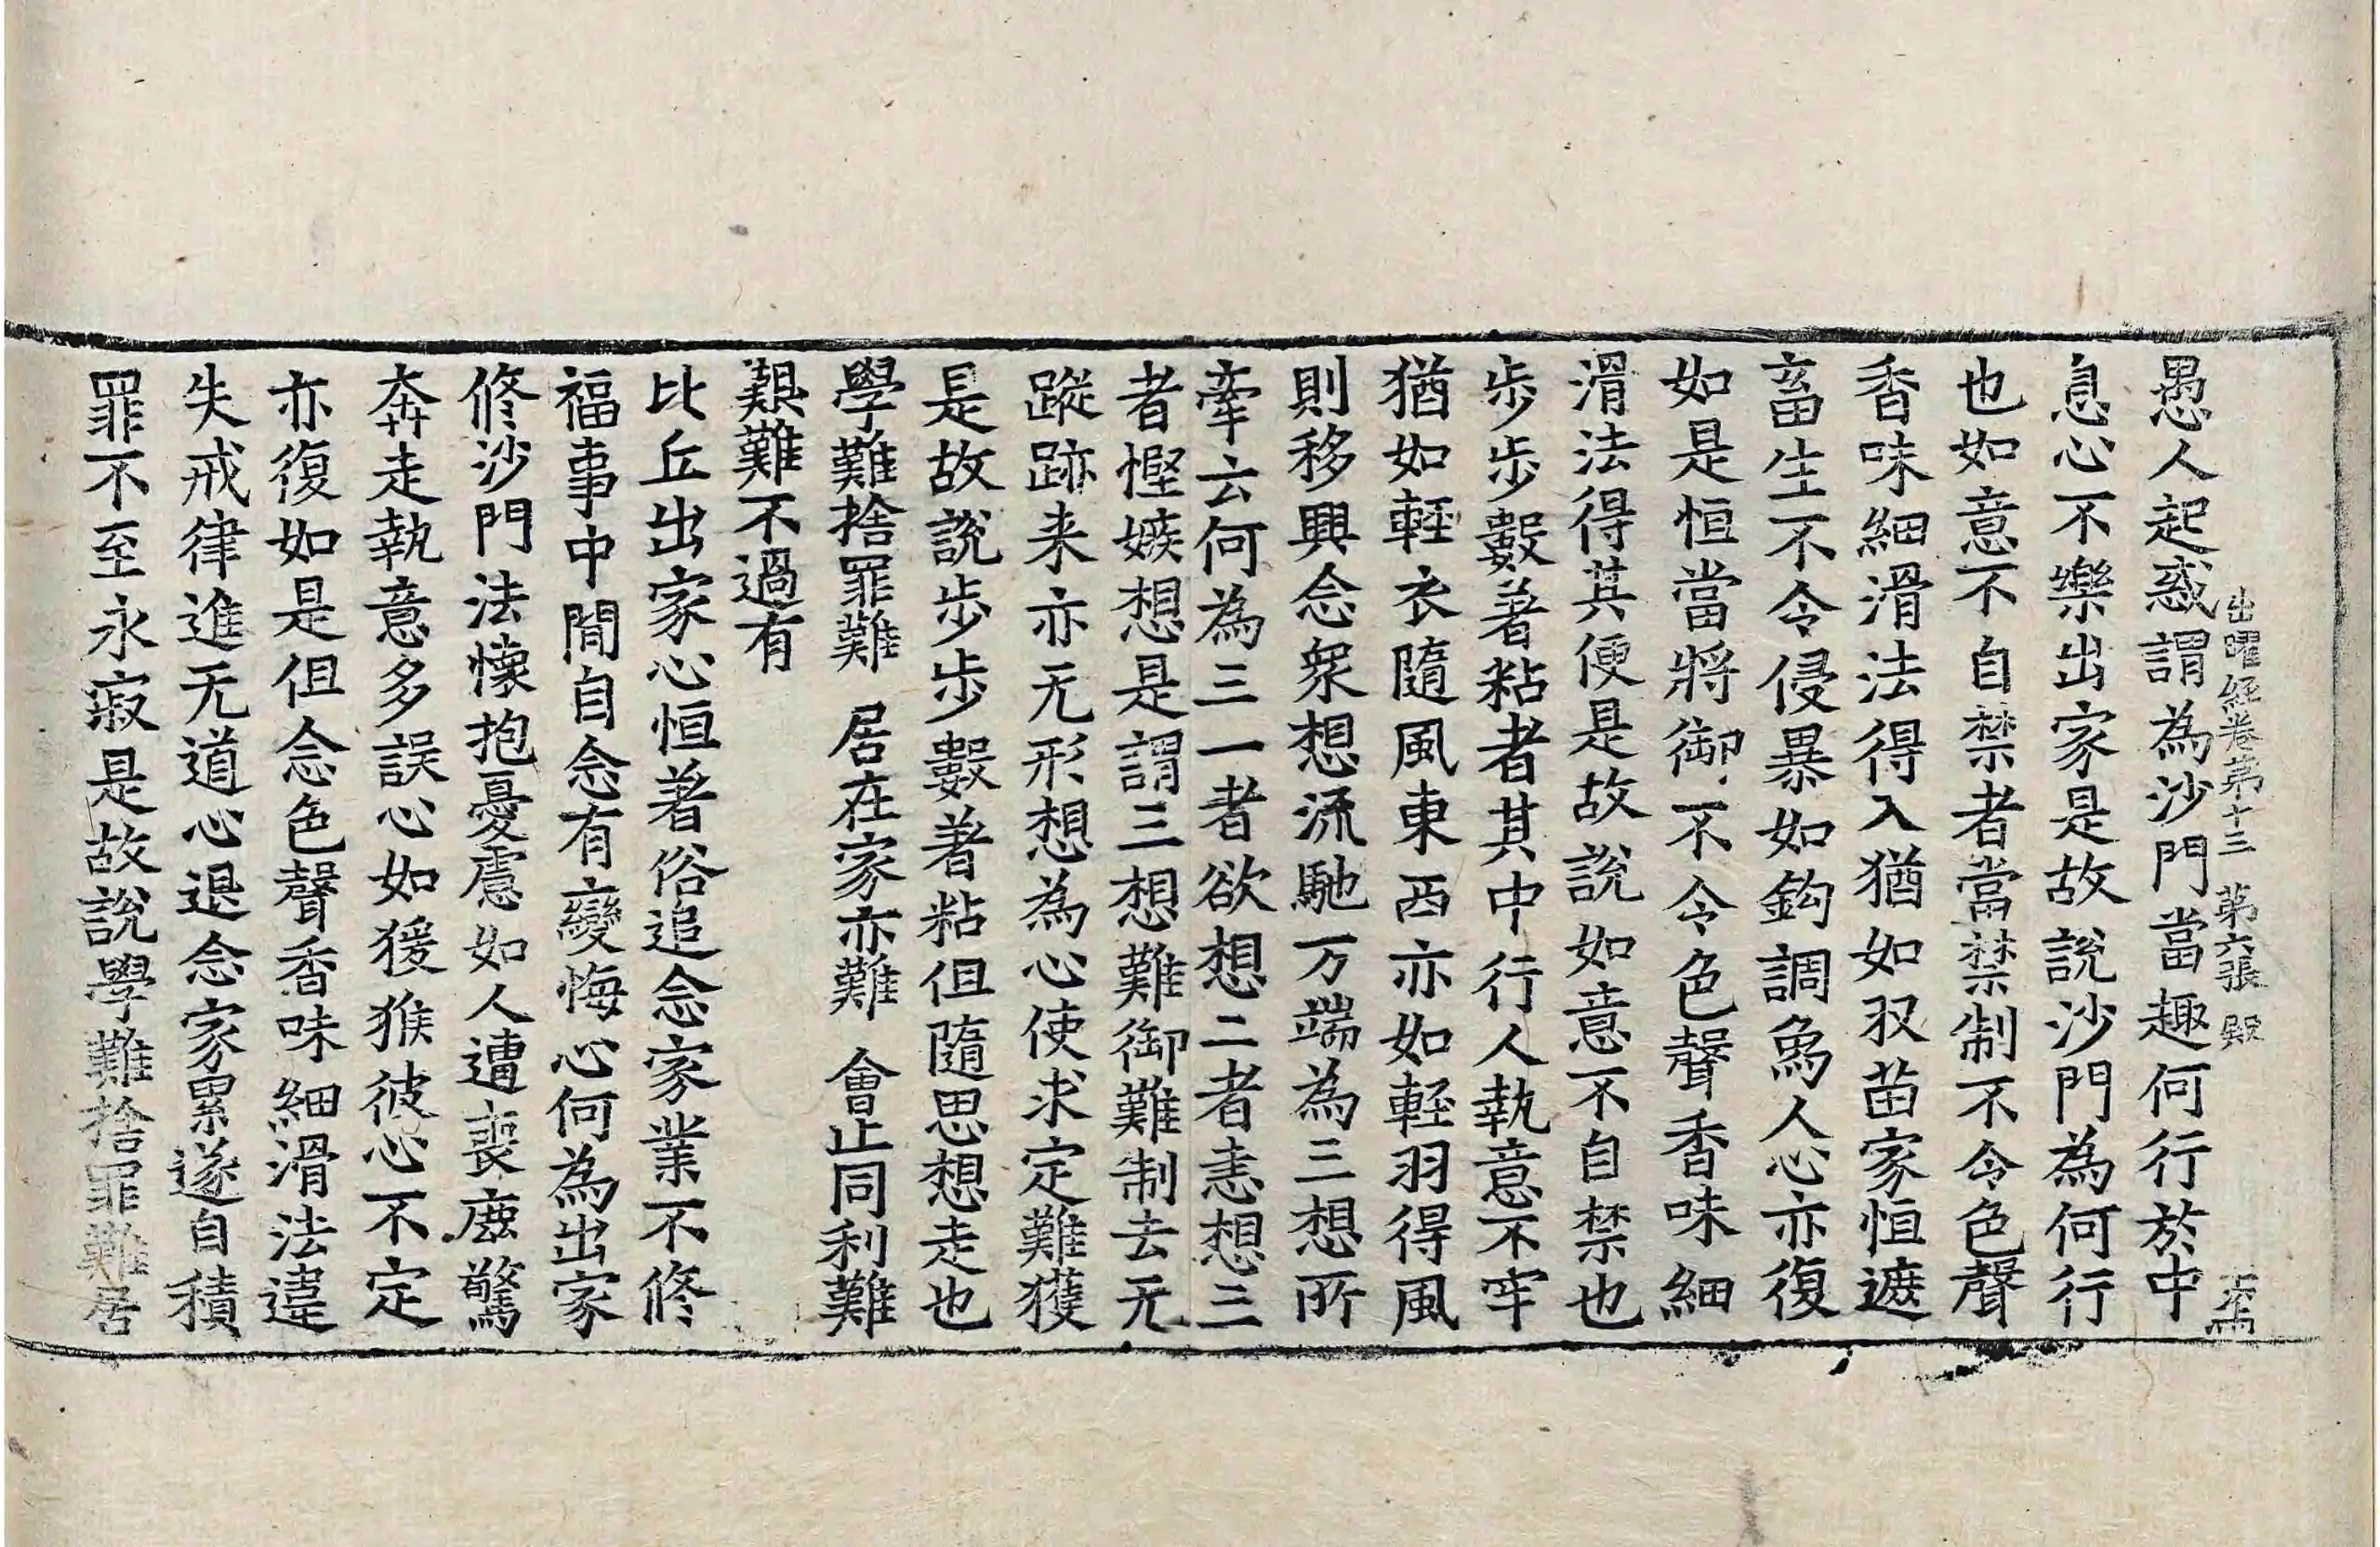 出曜經卷第十三 第六張 殿
愚人起惑謂為沙門當趣何行於中
息心不樂出家是故說沙門為何行
也如意不自禁者當禁制不令色聲
香味細滑法得入猶如収苗家恒遮
畜生不令侵暴如鈎調爲人心亦復
如是恒當將御不令色聲香味細
滑法得其便是故說如意不自禁也
步步數著粘者其中行人執意不牢
猶如輕衣隨風東西亦如輕羽得風
則移興念衆想流馳万端為三想所
牽云何為三一者欲想二者恚想三
者慳嫉想是謂三想難御難制去无
蹤跡来亦无形想為心使求定難獲
是故說步步數著粘但隨思想走也
學難捨罪難 居在家亦難 會止同利難
艱難不過有
比丘出家心恒著俗追念家業不修
福事中間自念有變悔心何為出家
修沙門法懷抱憂慮如人遭喪麈驚
奔走執意多誤心如猨猴彼心不定
亦復如是但念色聲香味細滑法違
失戒律進无道心退念家累遂自積
罪不至永寂是故說學難捨罪難居